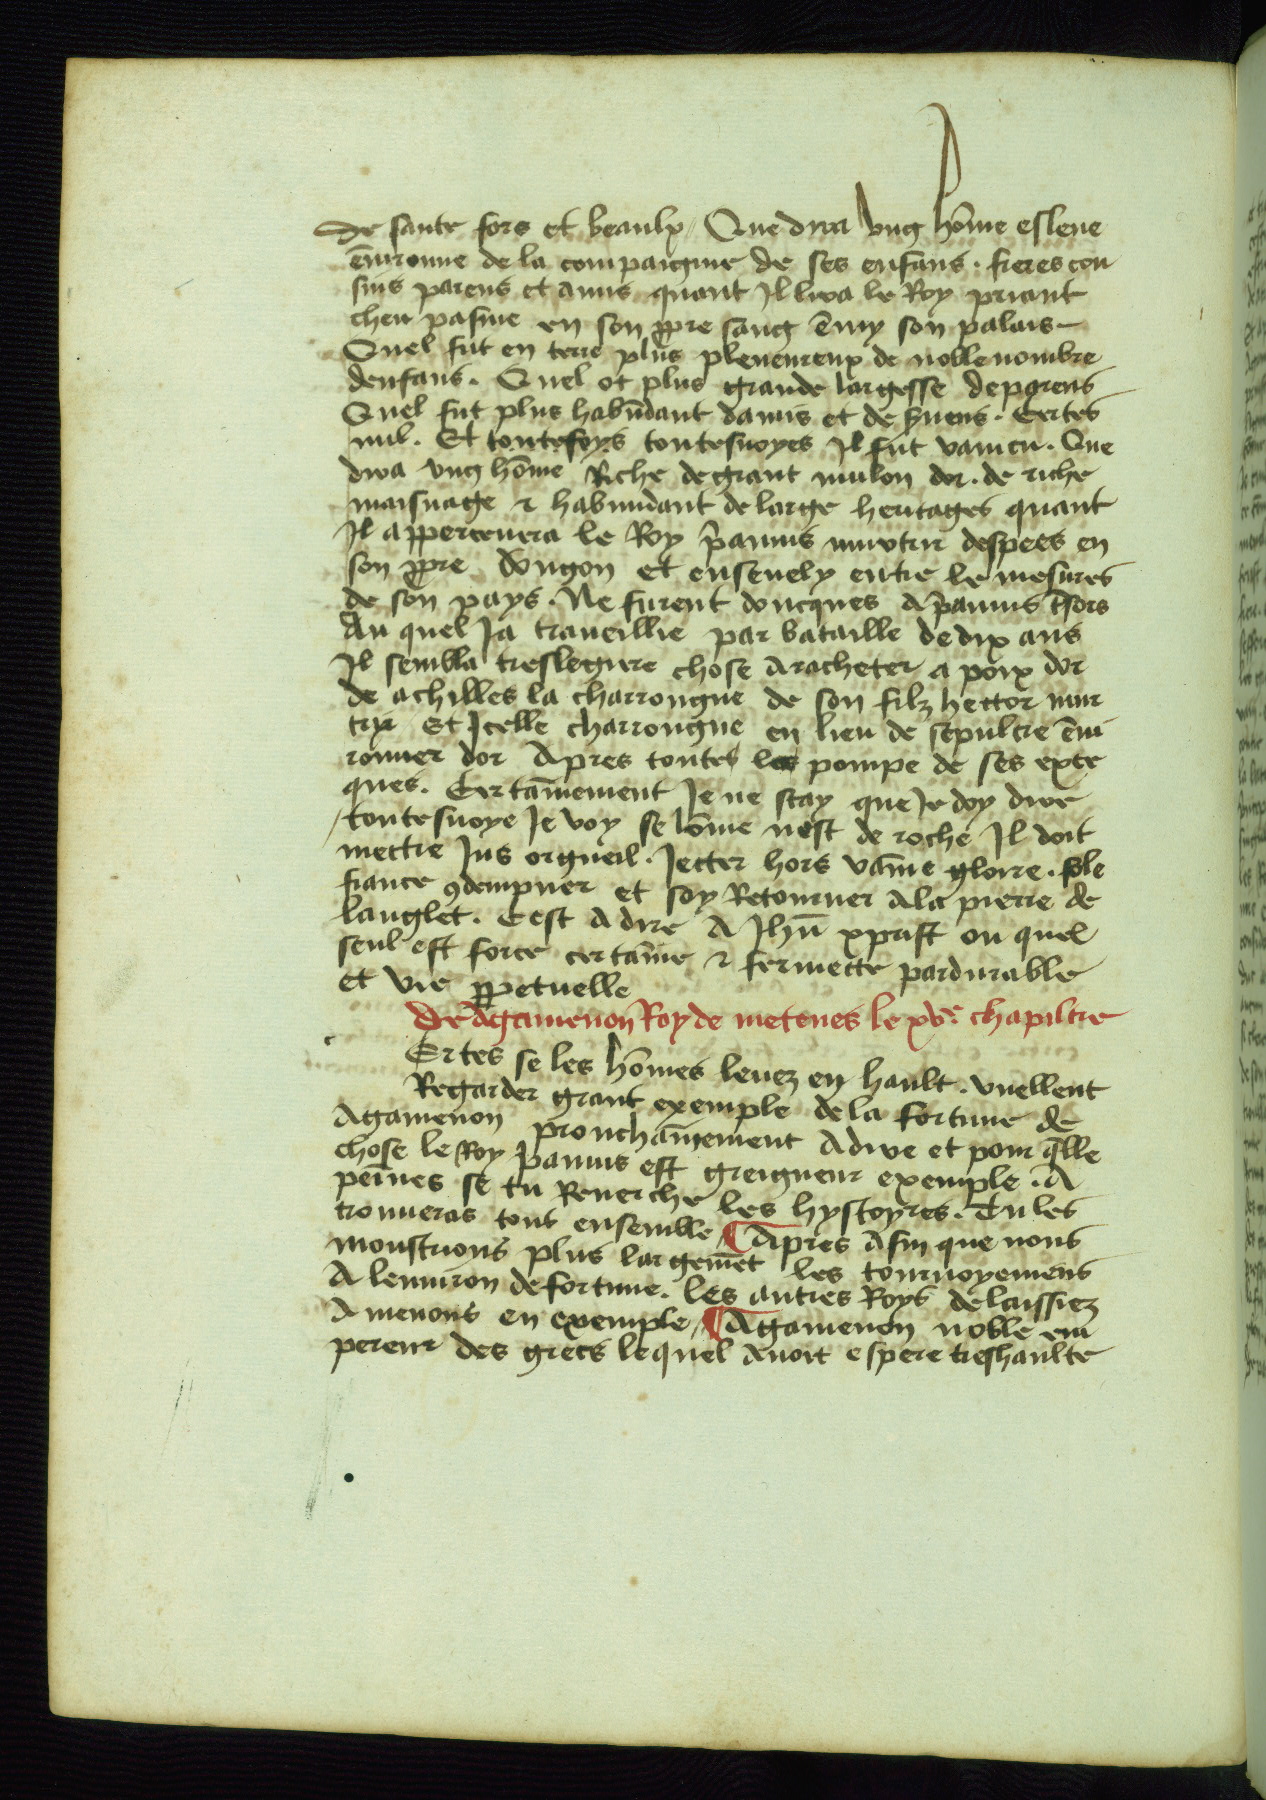 de sante fors et beaulx / Que dira ung hōme esleue
ēuironne de la compaignie de ses enfans . freres cou
sins parens et amis quant Il lira le Roy priant
cheu pasme en son ppre sang ēmy son palais
Quel fut en terre plus pleneureux de noble nombre
denfans . Quel ot plus grande largesse deparens
Quel fut plus habūdant damis et de syiens . Certes
nul . Et toutefoys toutesuoyes Il fut vaincu . Que
dira ung hōme Riche de grant mulon dor . de riche
maisnage & habundant de large heritages quant
Il appercevera le Roy p̄amus murtrir despees en
son ppre dōngon et enseuely entre le mesures
de son pays . Ne furent doncques a p̄amus t̄sors
Au quel Ja traueillie par bataille de dix ans
Il sembla treslegiere chose a racheter a poix dor
de achilles la charrongne de son filz hector mur
trir Et Icelle charrongne en lieu de sepultre ēui
ronner dor Apres toutes les pompe de ses exce
ques . Certāinement Je ne scay que Je doy dire
toutesuoye Je voy se lōme nest de roche Il doit
mettre Jus orgueil . Jetter hors vāine gloire . fole
fiance 9dempner et soy Retourner a la pierre de
langlet . Cest a dire A Jhū xprist ou quel
seul est force certāine & fermette pardurable
et vie ppetuelle
De Agamenon Roy de metenes le xve chapiltre
Ertes se les hōmes leuez en hault . vuellent
Regarder grant exemple de la fortune de
Agamenon prouchāinement A dire et pour q̄lle
chose le Roy p̄amus est greigneur exemple . A
peīnes se tu Reuerche les hystoyres . Tu les
trouueras tous ensemble / ¶ Apres Afin que nous
monstrions plus largemēt les tournoyemens
A lenuiron de fortune . les autres Roys delaissiez
Amenons en exemple / ¶ Agamenon noble em
pereur des grecs lequel Auoit espere treshaulte